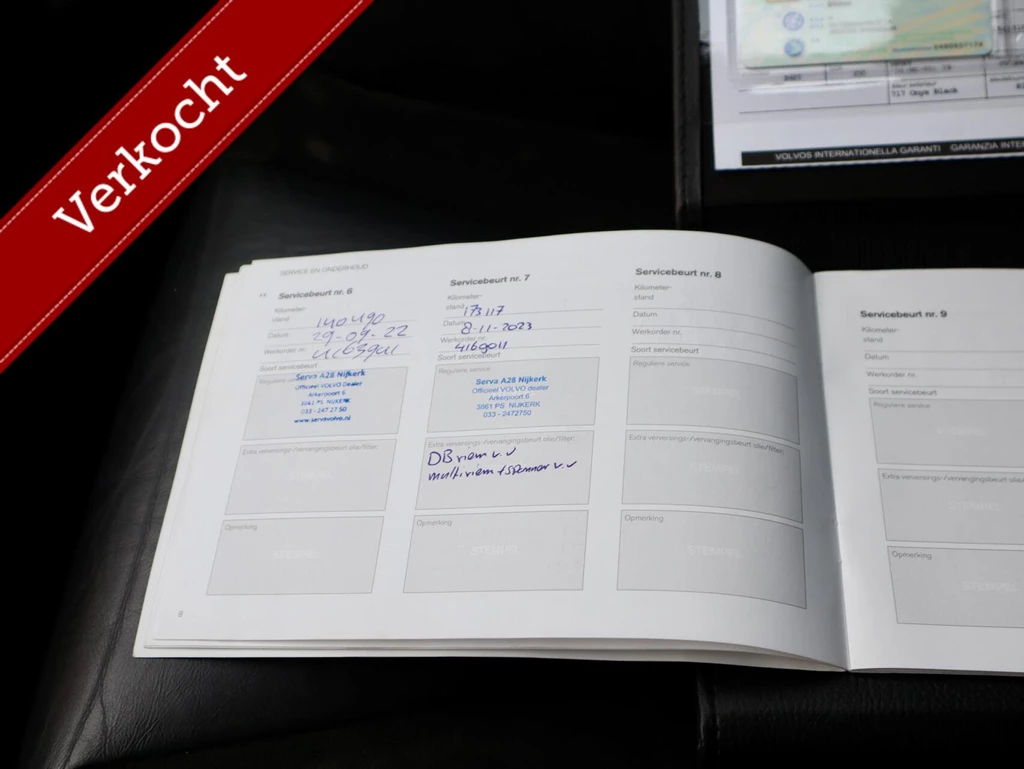 Verkocht
717 Onyx Black
VOLVOS INTERNATIONELLA GARANTI GARANZIA INTE
SERVICE EN ONDERHOUD
Servicebeurt nr. 6
Kilometer-
stand 140490
Datum 29-09-22
Werkorder nr.
Soort servicebeurt
Reguliere service
Serva A28 Nijkerk
Officieel VOLVO Dealer
Arkerpoort 6
3861 PS NIJKERK
033 - 247 27 50
www.servavolvo.nl
Extra verversings-/vervangingsbeurt olie/filter:
STEMPEL
Opmerking
STEMPEL
8
Servicebeurt nr. 7
Kilometer-
stand 173117
Datum 8-11-2023
Werkorder nr. 4169011
Soort servicebeurt
Reguliere service
Serva A28 Nijkerk
Officieel VOLVO dealer
Arkerpoort 6
3861 PS NIJKERK
033 - 2472750
Extra verversings-/vervangingsbeurt olie/filter:
DB riem v.v
multiriem + spanner v.v
Opmerking
STEMPEL
Servicebeurt nr. 8
Kilometer-
stand
Datum
Werkorder nr.
Soort servicebeurt
Reguliere service
STEMPEL
Extra verversings-/vervangingsbeurt olie/filter:
STEMPEL
Opmerking
STEMPEL
Servicebeurt nr. 9
Kilometer-
stand
Datum
Werkorder nr.
Soort servicebeurt
Reguliere service
STEMPEL
Extra verversings-/vervangingsbeurt olie/
STEMPEL
Opmerking
STEMPEL